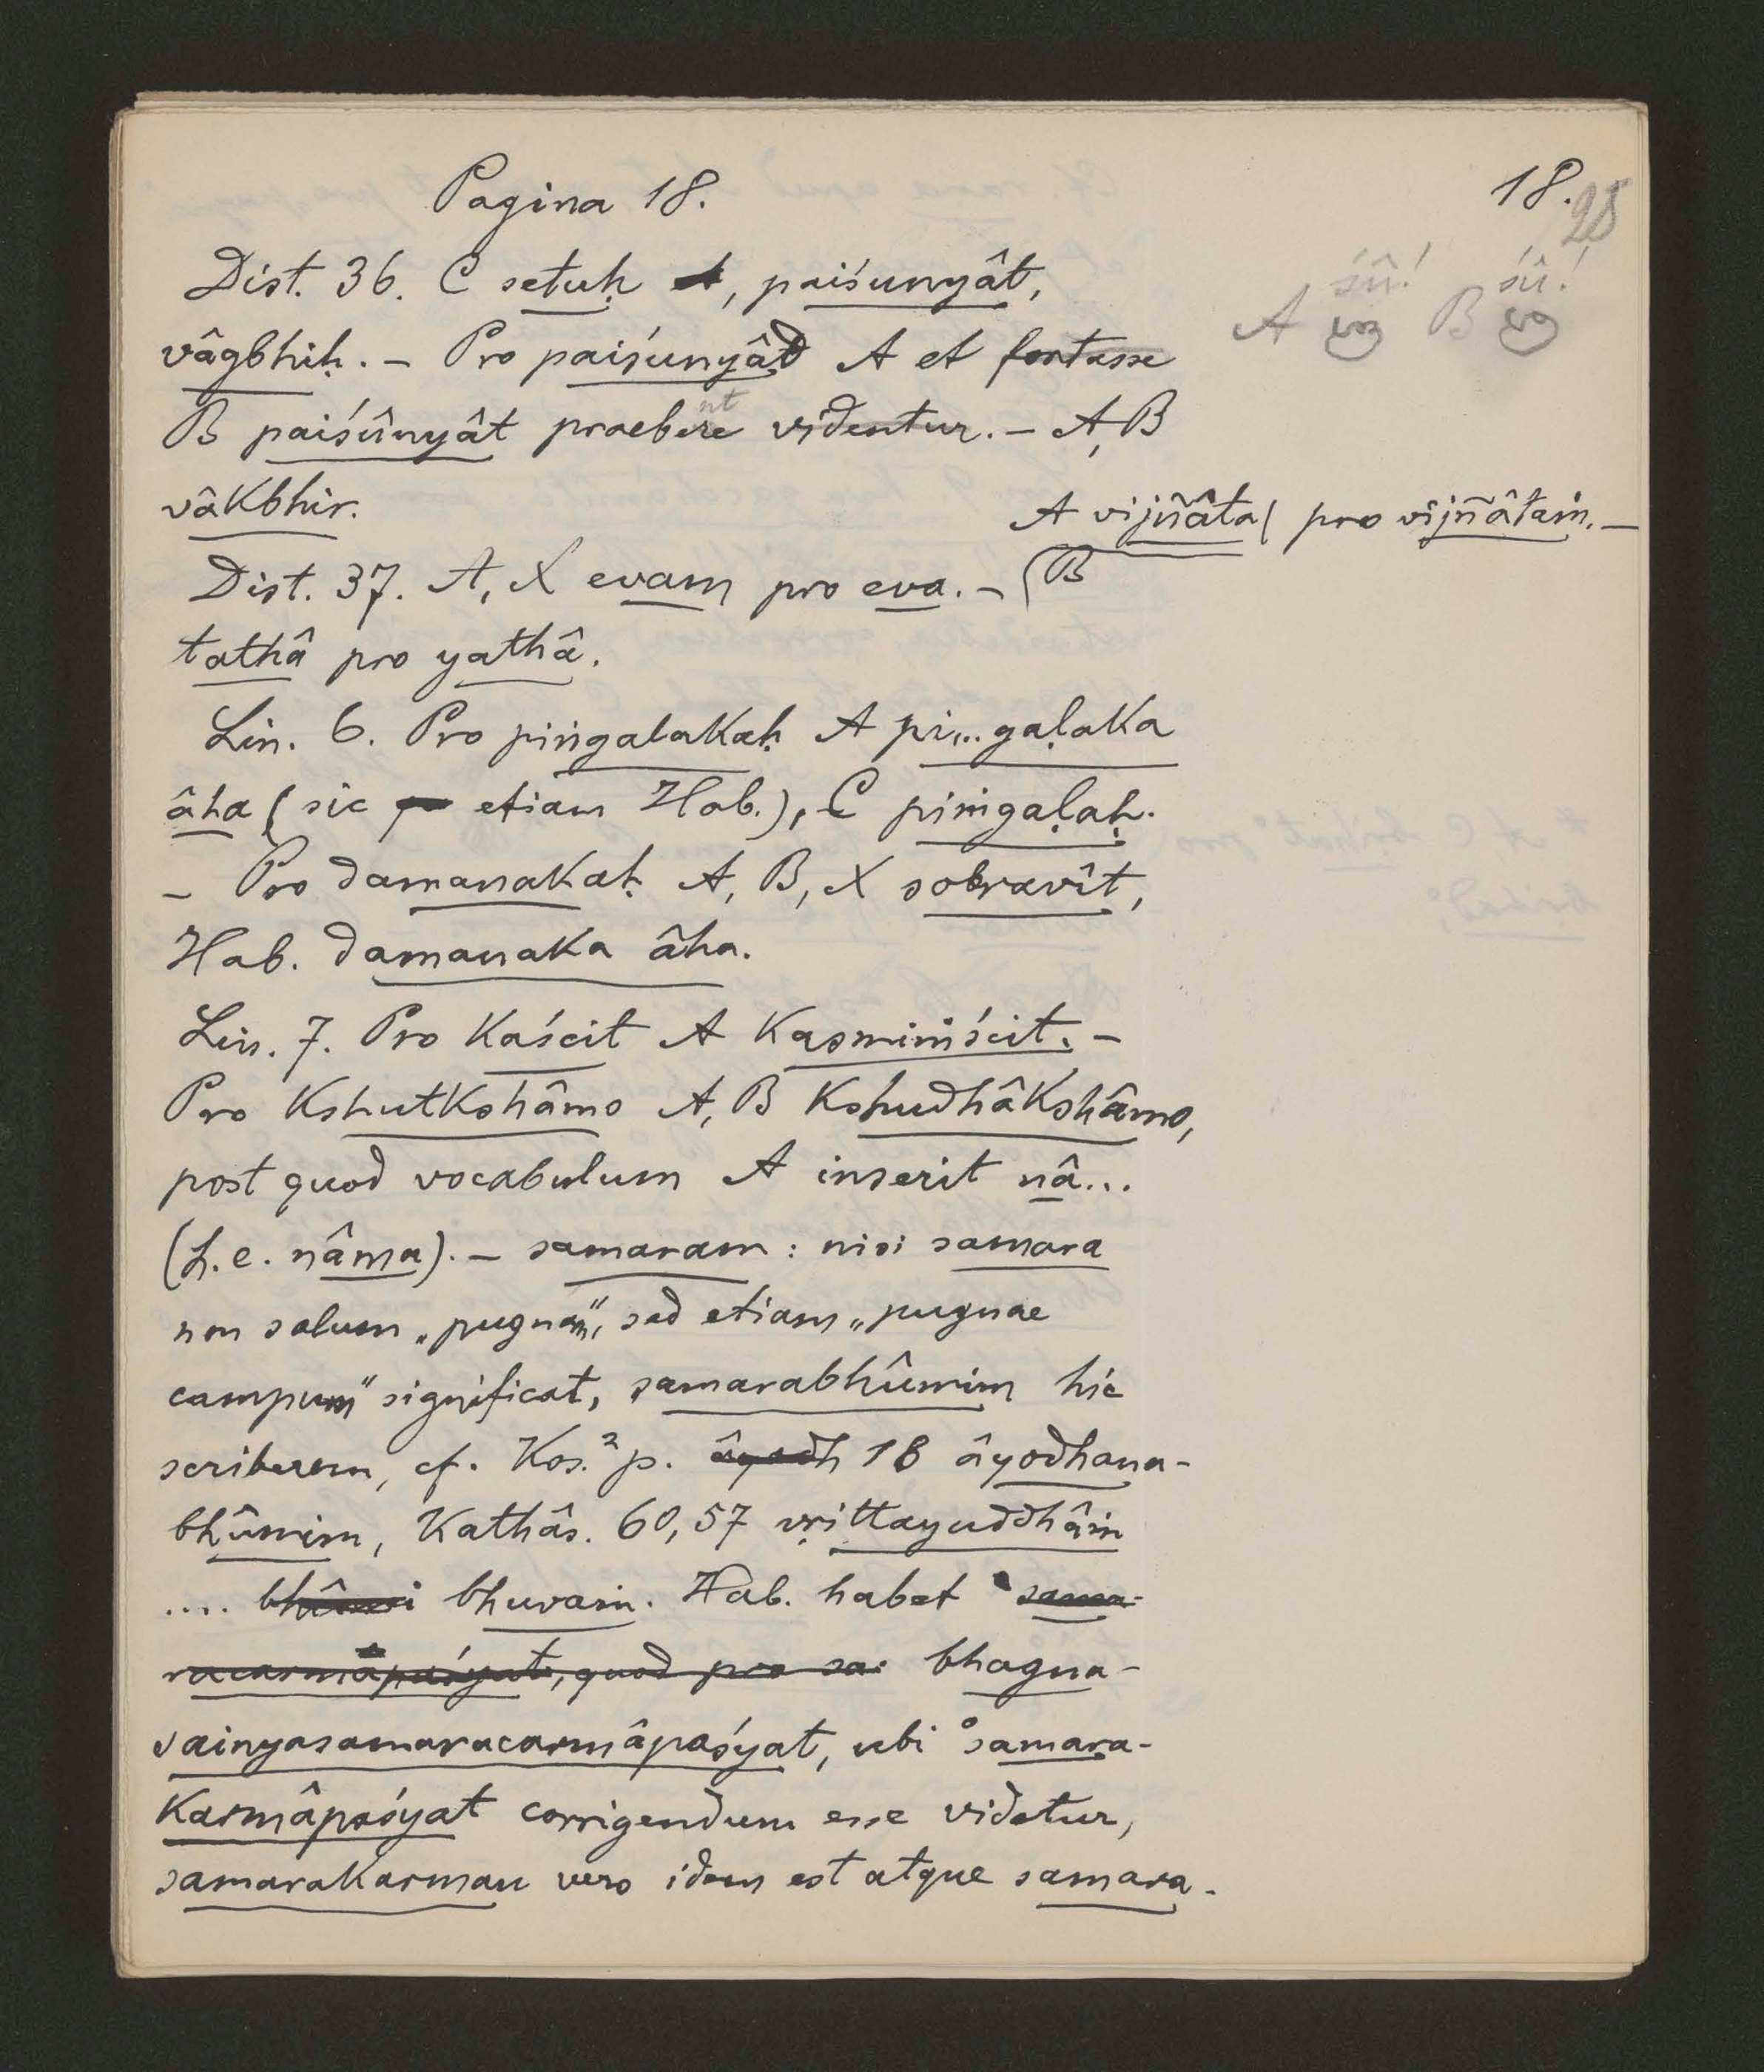 Pagina 18.
18.
28
Dist. 36. C setuḥ, paiśunyât,
śû! śû!
A B
vâgbhiḥ. – Pro paiśunyâd A et fortasse
B paiśûnyât praebere videntur. – A, B
nt
vâkbhir.
A vijñâta pro vijñâtaṁ. –
Dist. 37. A, X evam pro eva. – B
tathâ pro yathâ.
Lin. 6. Pro piṅgalakaḥ A pi...gaḷaka
âha (sic etiam Hab.), C piṁgaḷaḥ.
– Pro damanakaḥ A, B, X sobravît,
Hab. damanaka âha.
Lin. 7. Pro kaścit A kasmiṁścit. –
Pro kshutkshâmo A, B kshudhâkshâmo,
post quod vocabulum A inserit nâ...
(h. e. nâma). – samaram: nisi samara
non solum „pugnam“, sed etiam „pugnae
campum“ significat, samarabhûmim hic
scriberem, cf. Kos.² p. âyodh 18 âyodhana-
bhûmim, Kathâs. 60,57 vṛittayuddhâṁ
.... bhûmi bhuvaṁ. Hab. habet sama-
racarmâpaśyat, quod pro sa. bhagna-
sainyasamaracarmâpaśyat, ubi °samara-
karmâpaśyat corrigendum esse videtur,
samarakarman vero idem est atque samara.